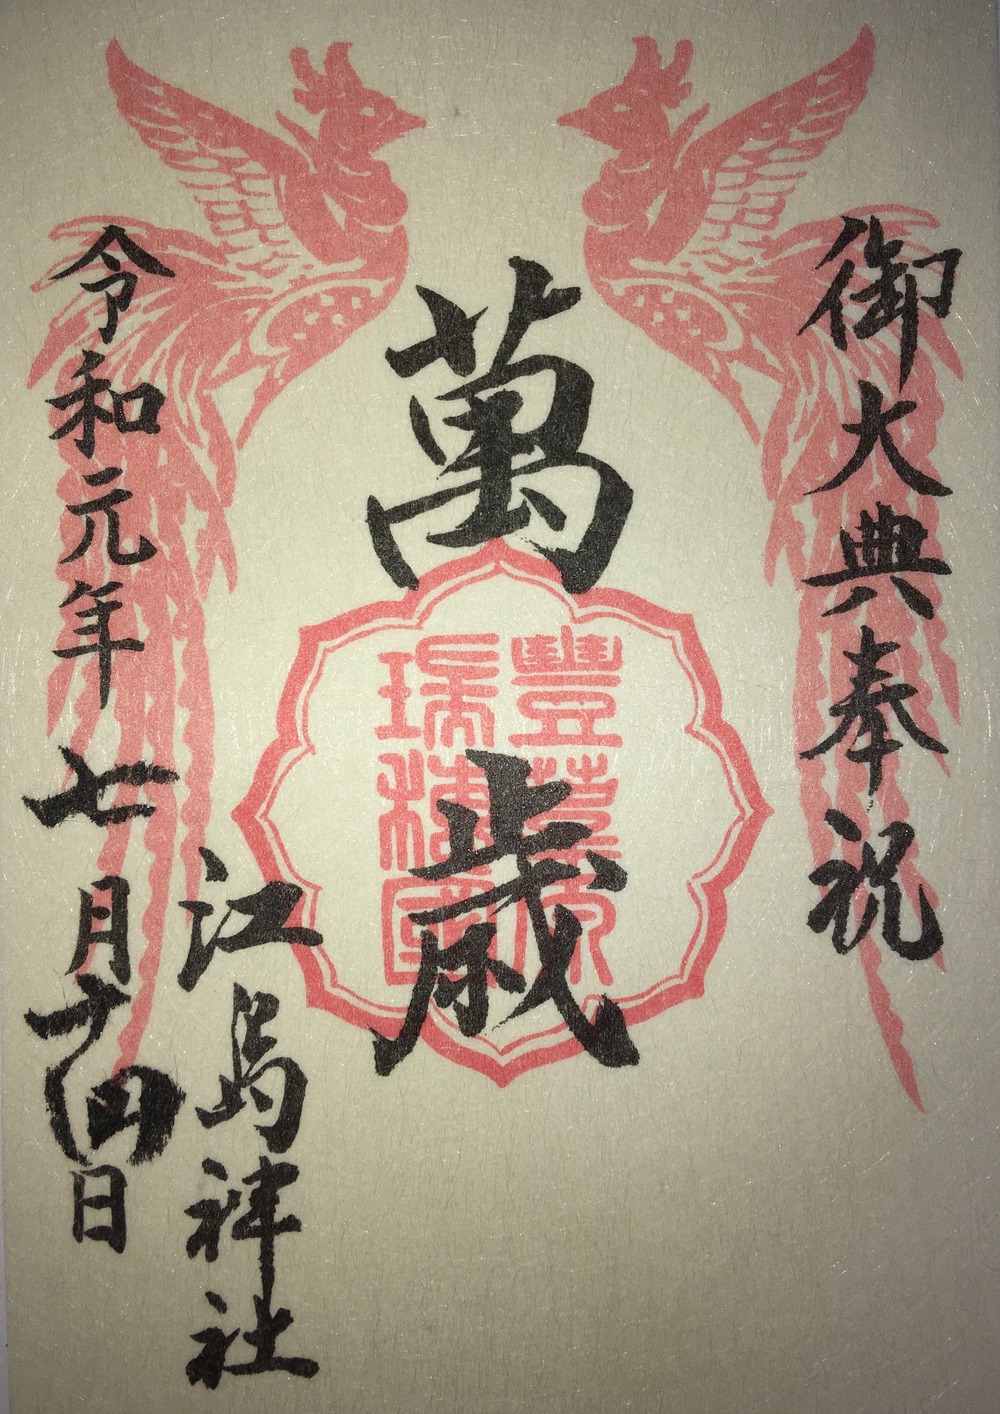 御大典奉祝
萬歳
豐葦原
瑞穂國
江島神社
令和元年七月十四日